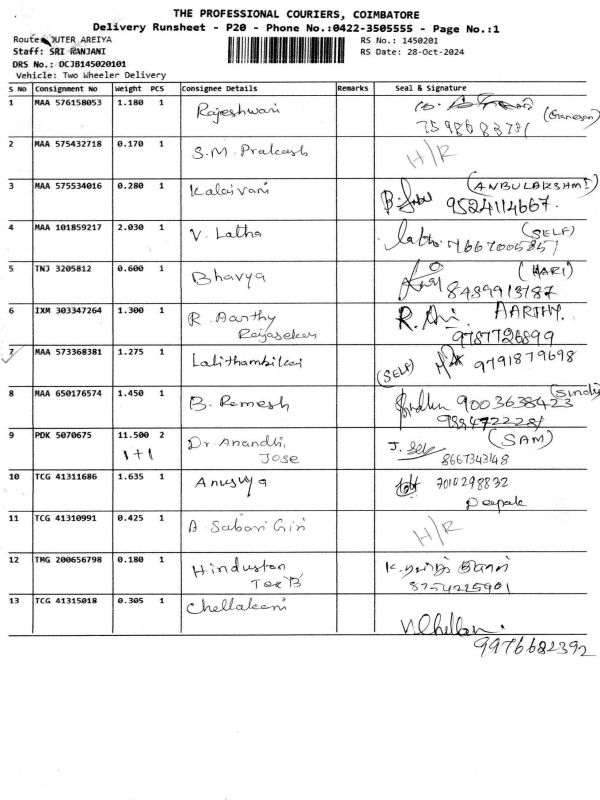 THE PROFESSIONAL COURIERS, COIMBATORE
Delivery Runsheet - P20 - Phone No.:0422-3505555 - Page No.:1
Route: OUTER AREIYA
RS No.: 1450201
Staff: SRI RANJANI
RS Date: 28-Oct-2024
DRS No.: DCJB145020101
Vehicle: Two Wheeler Delivery
S No Consignment No Weight PCS Consignee Details Remarks Seal & Signature
1 MAA 576158053 1.180 1 Rajeshwari (Ganesan)
7598683781
2 MAA 575432718 0.170 1 S.M. Prakash H/R
3 MAA 575534016 0.280 1 Kalaivani (ANBULAKSHMI)
9524114667.
4 MAA 101859217 2.030 1 V. Latha (SELF)
Latha 7667005857
5 TNJ 3205812 0.600 1 Bhavya (HARI)
8489913787
6 IXM 303347264 1.300 1 R. Aarthy AARTHY.
Rajasekar 9787726899
7 MAA 573368381 1.275 1 (SELF) 9791879698
8 MAA 650176574 1.450 1 B. Remesh 9003638423
9 PDK 5070675 11.500 2 Dr. Anandhi, (SAM)
1+1 Jose 8667343148
10 TCG 41311686 1.635 1 Anusya 7010298832
Deepak
11 TCG 41310991 0.425 1 A. Sabari Giri H/R
12 TMG 200656798 0.180 1 Hindustan
8754225901
13 TCG 41315018 0.305 1 Chellakani
N.Chellan.
9976682392